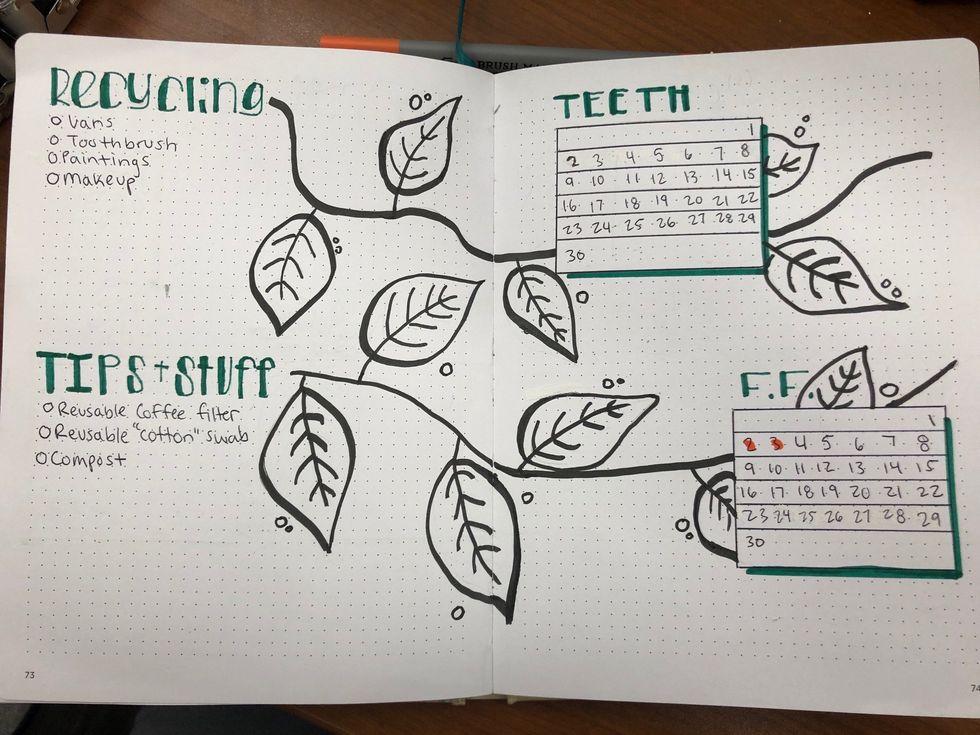 BRUSH MA
Recycling
O Vans
O Toothbrush
O Paintings
O Makeup
TIPS + Stuff
O Reusable Coffee filter
O Reusable "cotton" swab
O Compost
73
TEETH
1
2 3 4 5 6 7 8
9 10 11 12 13 14 15
16 17 18 19 20 21 22
23 24 25 26 27 28 29
30
F.F.
1
2 3 4 5 6 7 8
9 10 11 12 13 14 15
16 17 18 19 20 21 22
23 24 25 26 27 28 29
30
74